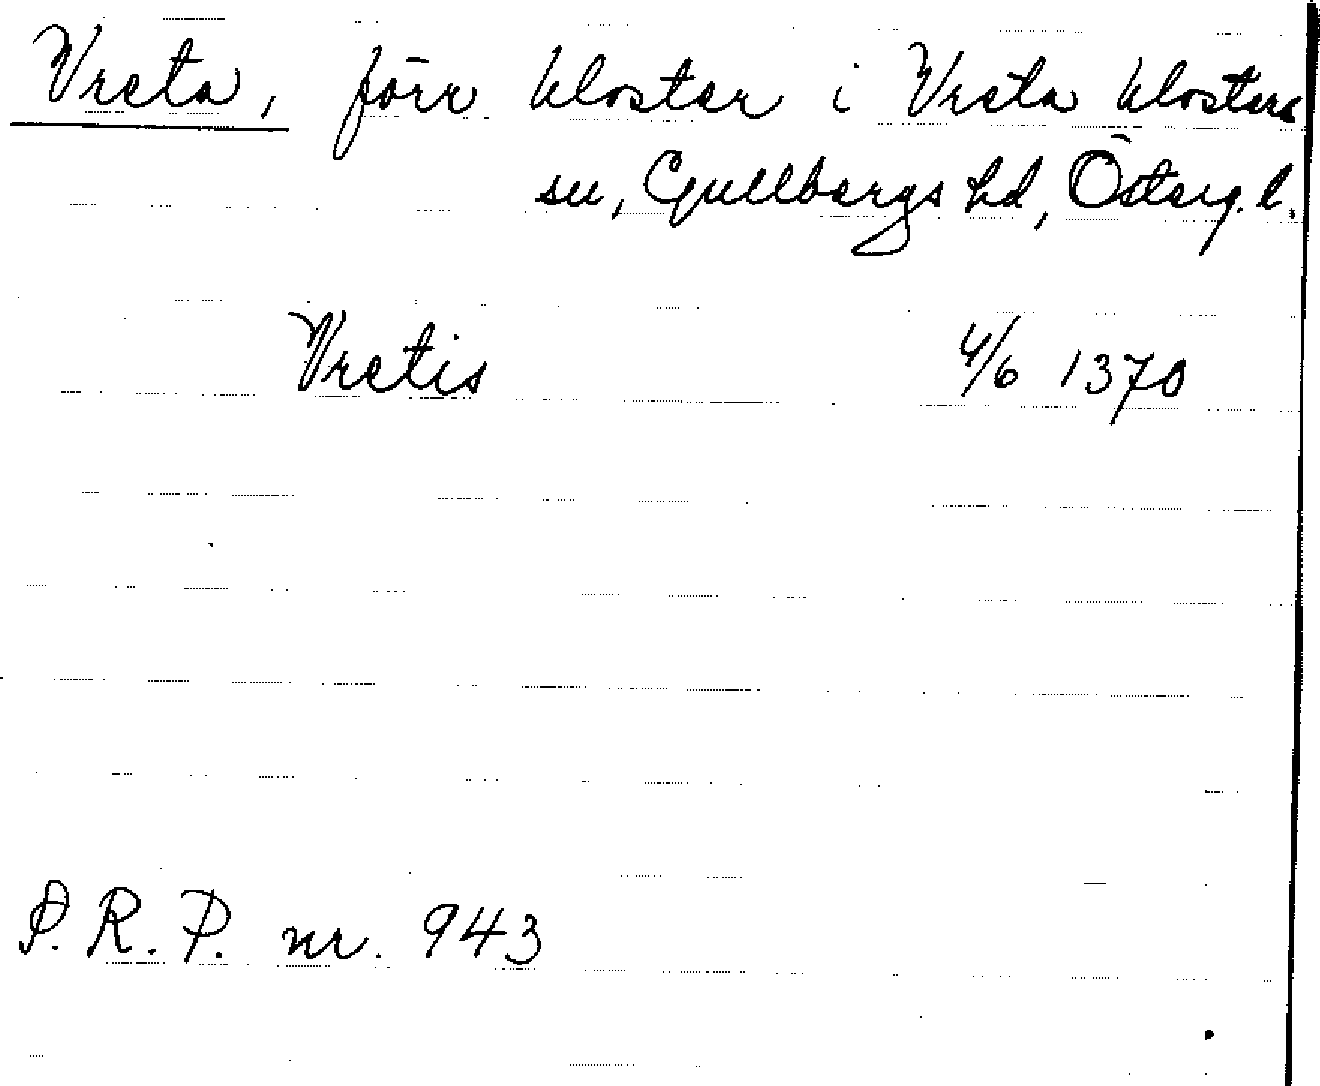 Vreta, förr kloster i Vreta klosters
sn, Gullbergs hd, Österg. l.
Vretis 4/6 1370
S. R. P. nr. 943